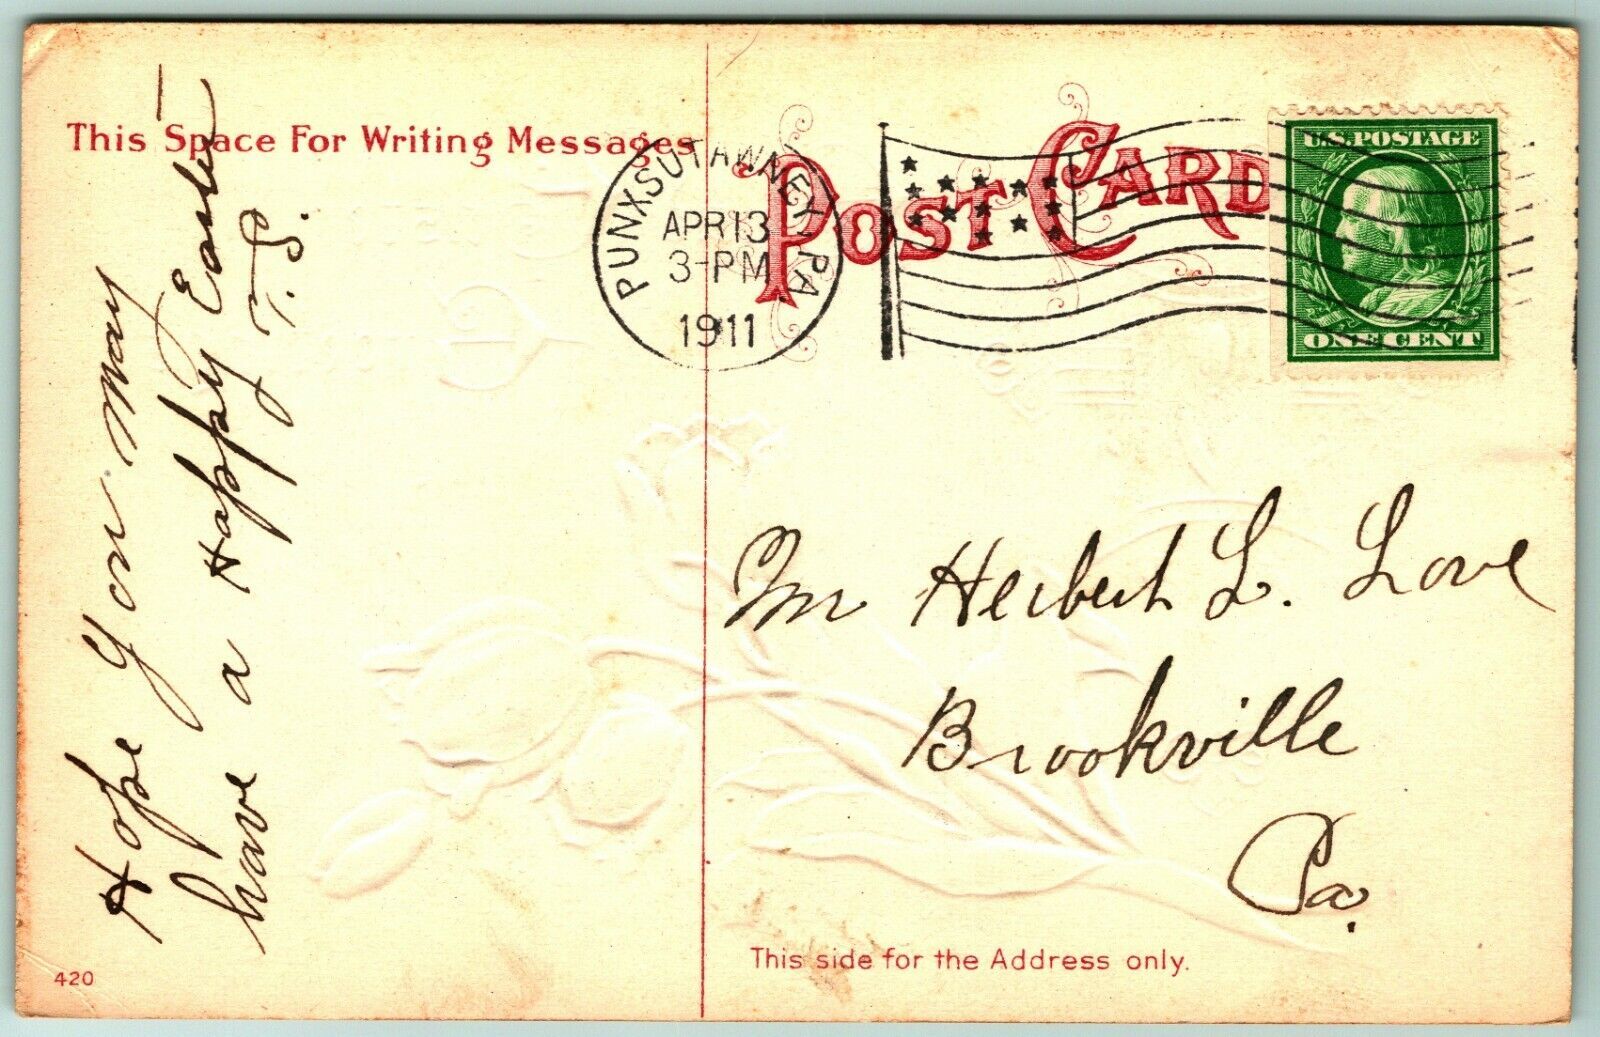 This Space For Writing Messages
POST CARD
PUNXSUTAWNEY, PA.
APR 13
3-PM
1911
U.S. POSTAGE
ONE CENT
Hope you may
have a Happy Easter
T. S.
Mr Herbert L. Love
Brookville
Pa.
This side for the Address only.
420